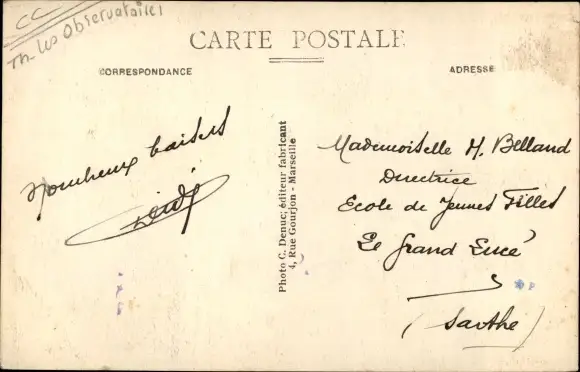 CC
Th. les Observatoires
CARTE POSTALE
CORRESPONDANCE
ADRESSE
Nombreux baisers
Photo C. Denuc, éditeur fabricant
4, Rue Gourjon - Marseille
Mademoiselle M. Belland
Directrice
Ecole de Jeunes Filles
Le Grand Lucé
(Sarthe)